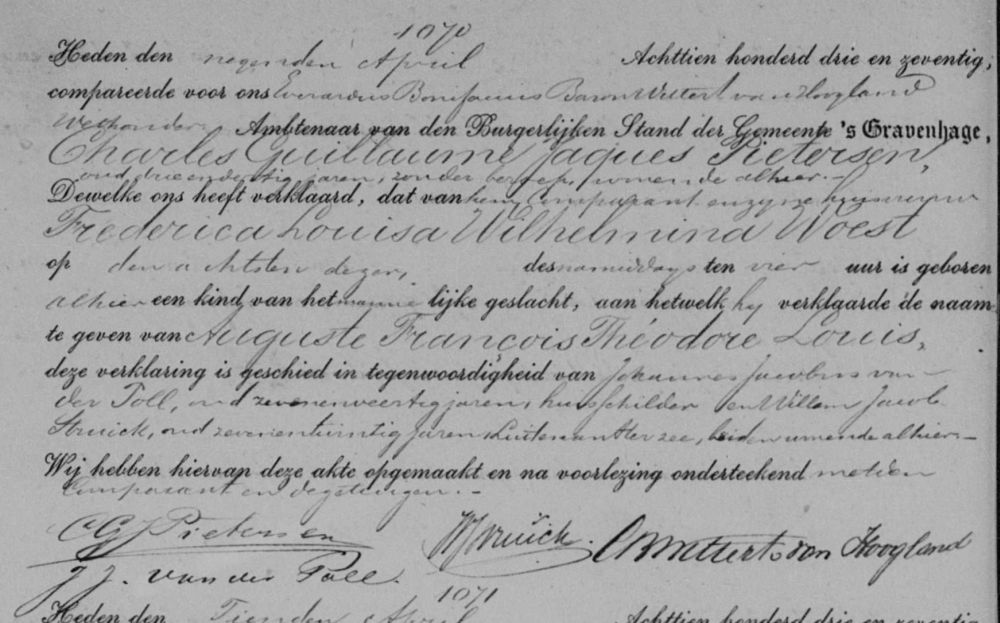 1070
Heden den negenden April Achttien honderd drie en zeventig,
compareerde voor ons Everardus Bonifacius Baron Wittert van Hoogland
Wethouder Ambtenaar van den Burgerlijken Stand der Gemeente 's Gravenhage,
Charles Guillaume Jaques Pietersen,
oud drie en dertig jaren, zonder beroep, wonende alhier.—
Dewelke ons heeft verklaard, dat van hem Comparant en zijne huisvrouw
Frederica Louisa Wilhelmina Woest
op den achtsten dezer, des namiddags ten vier uur is geboren
alhier een kind van het manne lijke geslacht, aan hetwelk hij verklaarde de naam
te geven van Auguste François Théodore Louis,
deze verklaring is geschied in tegenwoordigheid van Johannes Jacobus van
der Poll, oud zevenenveertig jaren, huisschilder en Willem Jacob
Struick, oud zevenentwintig jaren Luitenant ter zee, beiden wonende alhier—
Wij hebben hiervan deze akte opgemaakt en na voorlezing onderteekend met den
Comparant en de getuigen.—
CGJ Pietersen WJStruick. Wittert van Hoogland
J. J. van der Poll.
1071
Heden den Tienden April Achttien honderd drie en zeventig,